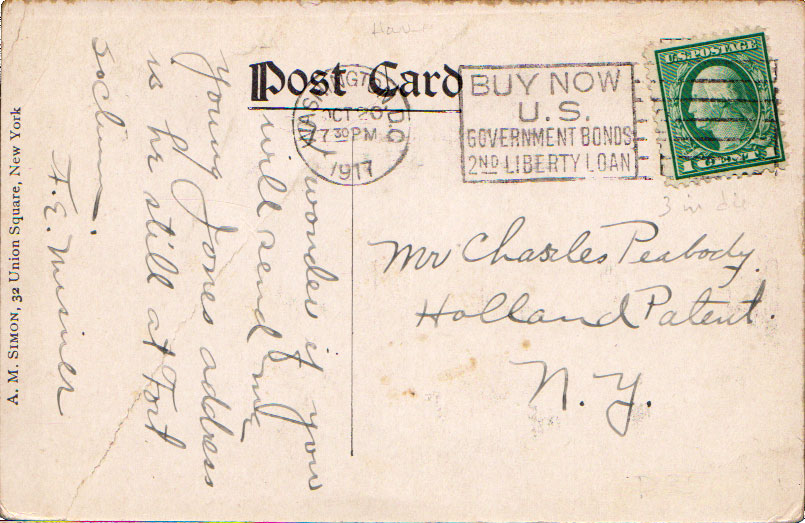 Post Card
WASHINGTON, D.C.
OCT 20
7 30 PM
1917
BUY NOW
U.S.
GOVERNMENT BONDS
2ND LIBERTY LOAN
U.S. POSTAGE
1 CENT 1
3 in
Mr Charles Peabody.
Holland Patent.
N.Y.
I wonder if you
will send me
Young Jones address
is he still at Fort
A.E. Misner
A. M. SIMON, 32 Union Square, New York